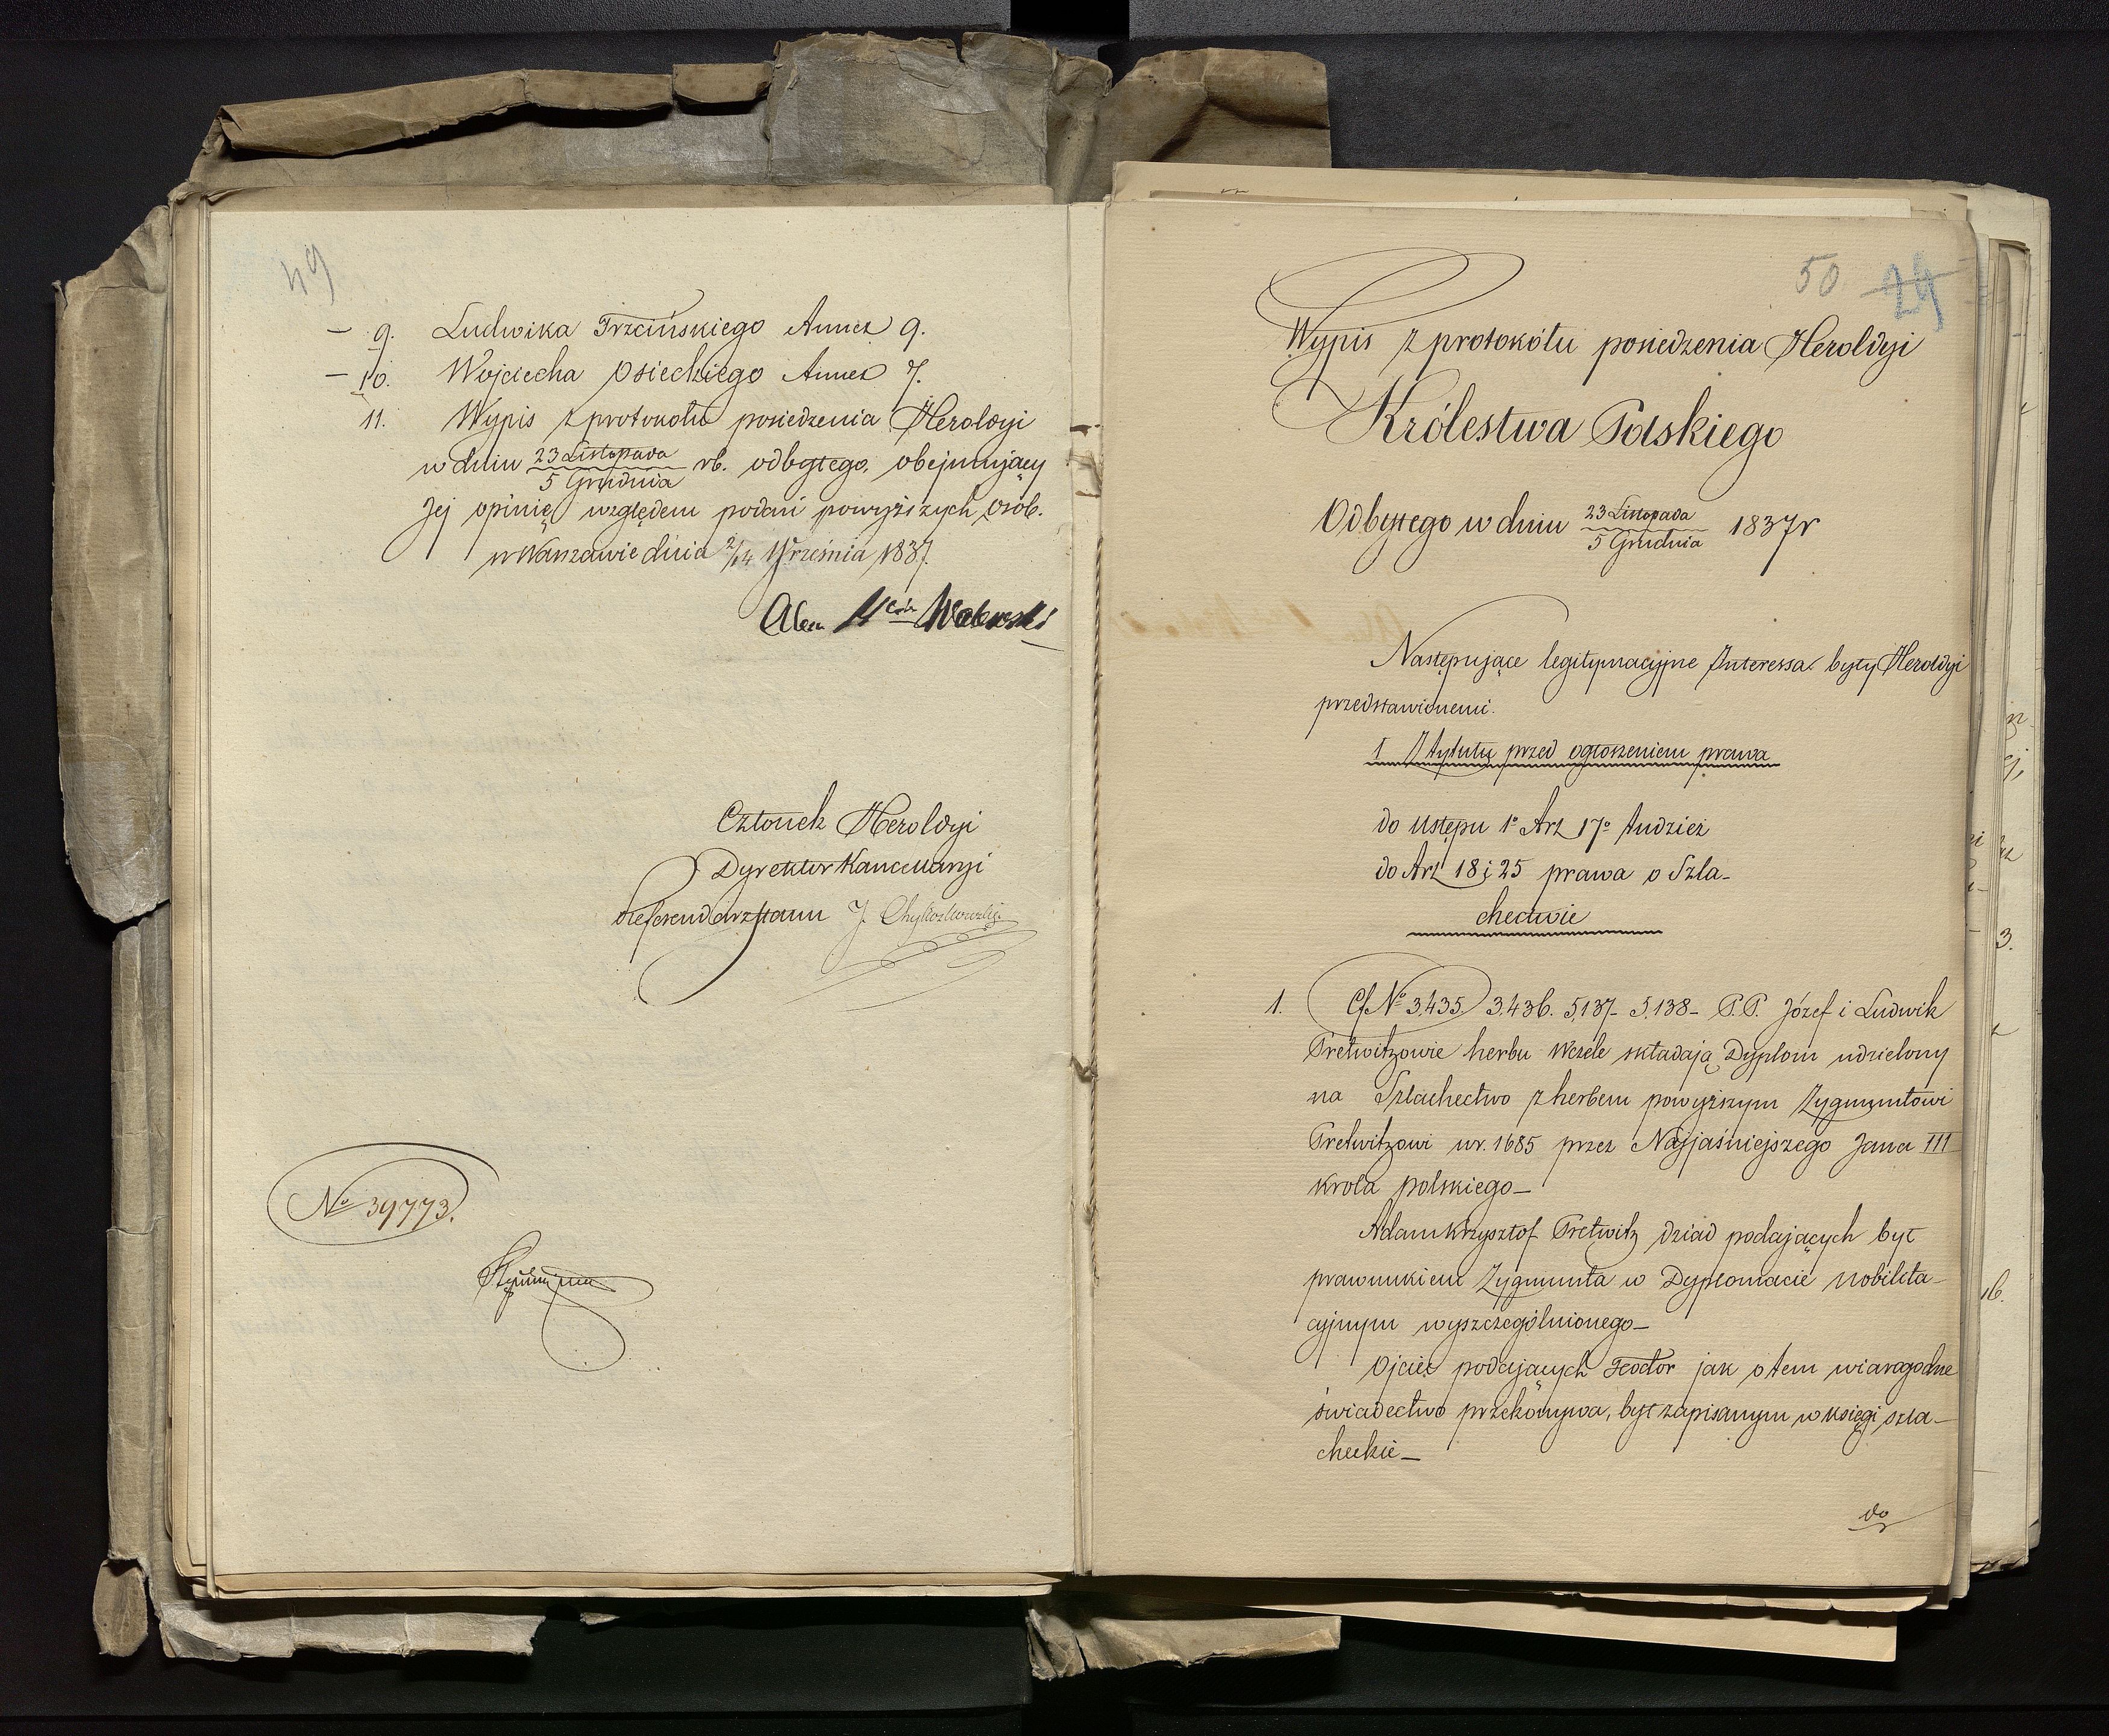 49
— 9. Ludwika Trzcińskiego Annex 9.
— 10. Wojciecha Osieckiego Annex 7.
11. Wypis z protokołu posiedzenia Heroldyi
w dniu 23 Listopada / 5 Grudnia rb. odbytego, obejmujący
Jej opinię względem podań powyższych osób.
w Warszawie dnia 2/14 Września 1837.
Alex Walewski
Członek Heroldyi
Dyrektor Kancellaryi
Referendarz Stanu J.
No 39773.
50 24
Wypis z protokółu posiedzenia Heroldyi
Królestwa Polskiego
Odbytego w dniu 23 Listopada / 5 Grudnia 1837 r
Następujące legitymacyjne Interessa były Heroldyi
przedstawionemi.
I Z tytułu przed ogłoszeniem prawa
do Ustępu 1o Art 17o tudzież
do Art 18 i 25 prawa o Szla-
chectwie
1. Cf No 3,435. 3,436. 5,137- 5,138- P.P. Józef i Ludwik
Pretwitzowie herbu Wczele składają Dyplom udzielony
na Szlachectwo z herbem powyższym Zygmuntowi
Pretwitzowi w r. 1685 przez Najjaśniejszego Jana III
krola polskiego-
Adam Krzysztof Pretwitz dziad podających był
prawnukiem Zygmunta w Dyplomacie nobilita-
cyjnym wyszczególnionego-
Ojciec podających Teodor jak o tem wiarogodne
świadectwo przekonywa, był zapisanym w księgi szla-
checkie-
do